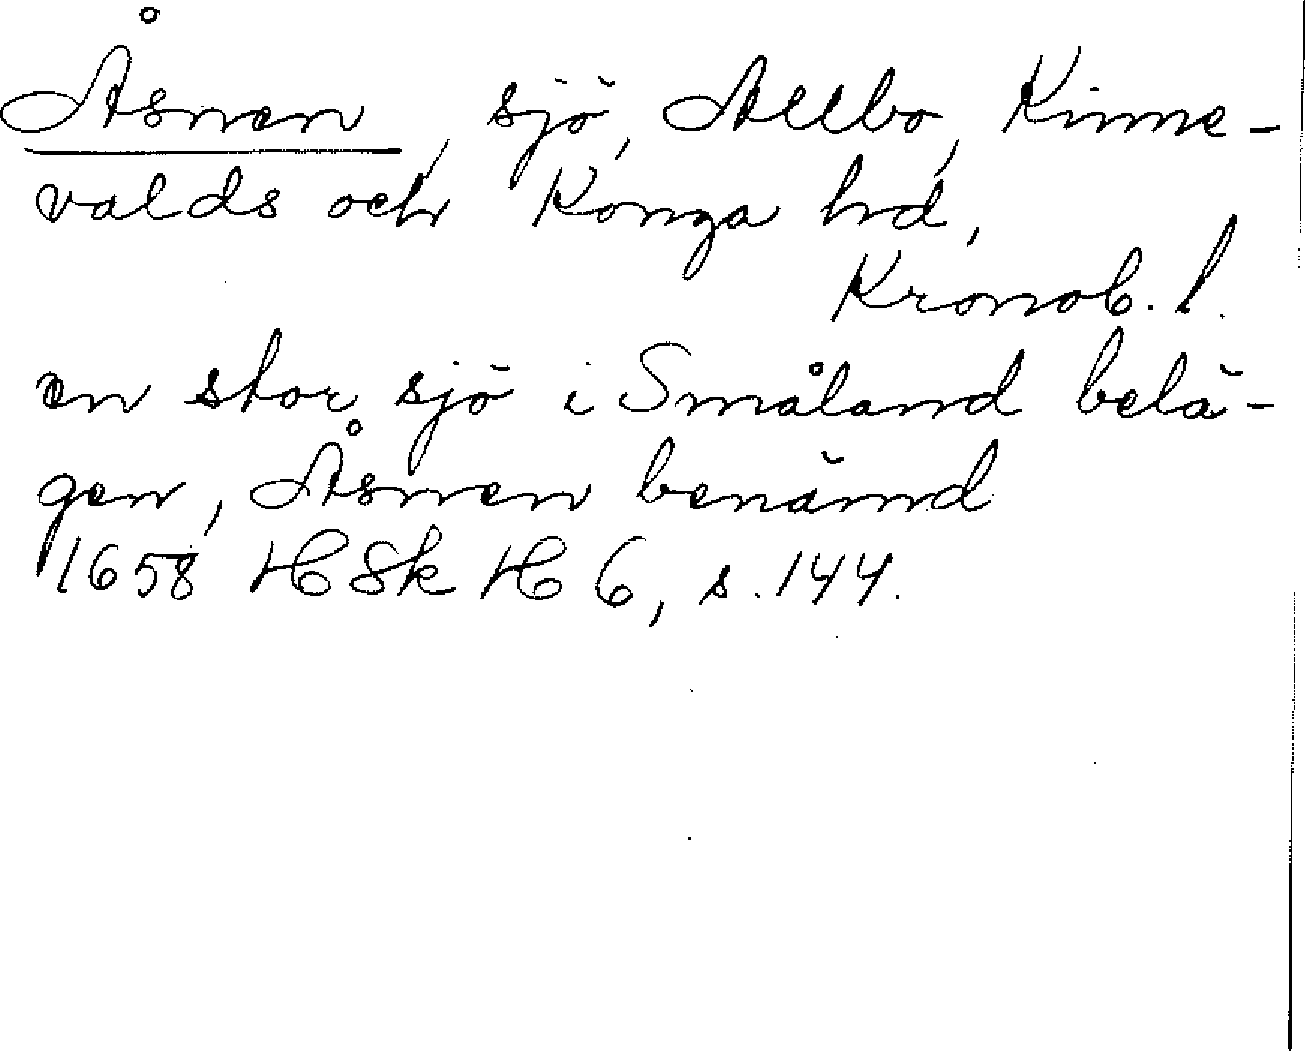 Åsnen, sjö, Allbo, Kinne-
valds och Konga hd,
Kronob. l.
en stor sjö i Småland belä-
gen, Åsnen benämd
1658 HSkH 6, s. 144.